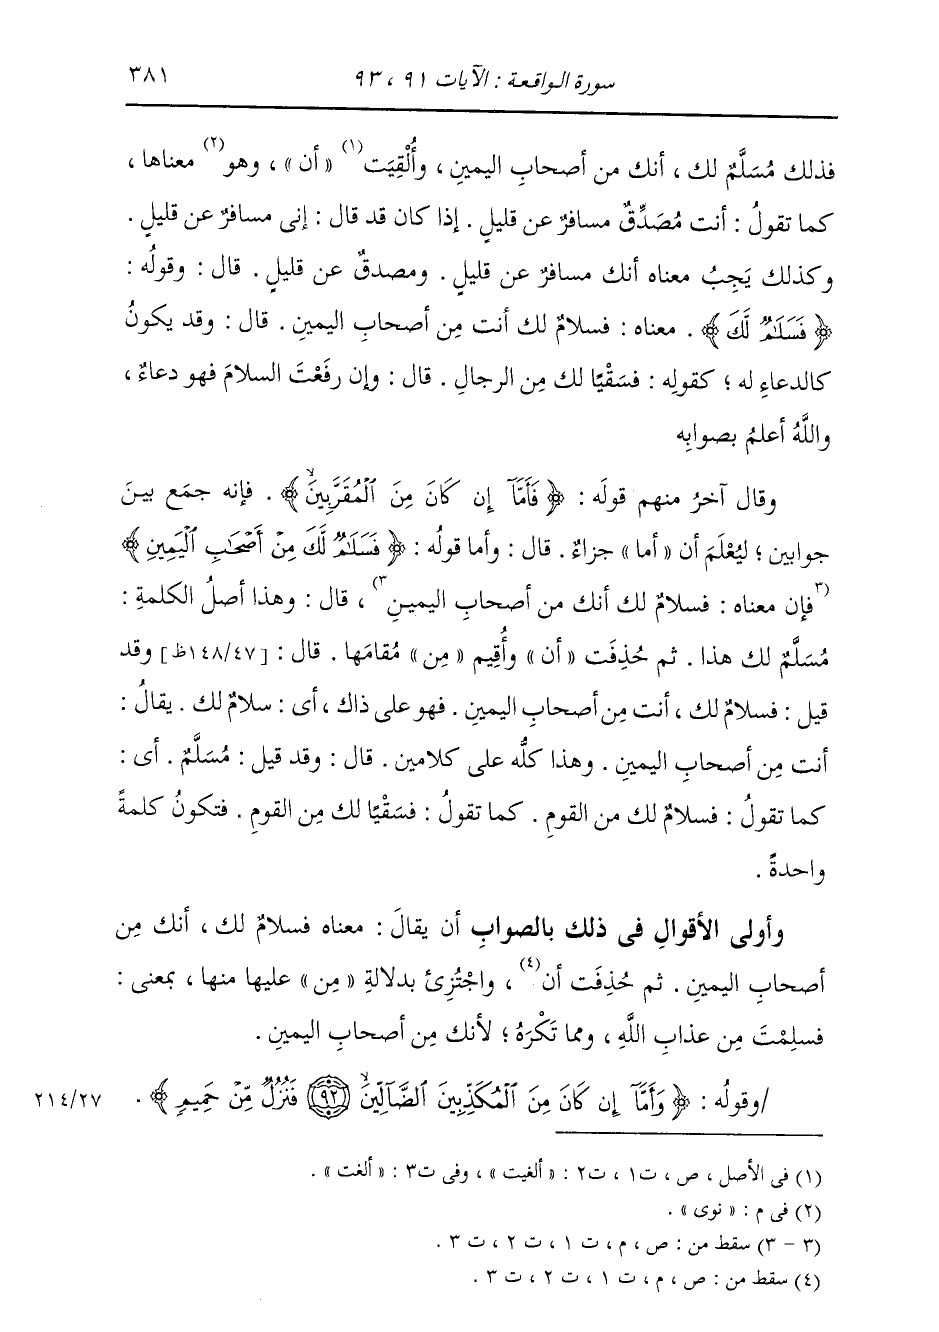 سورة الواقعة : الآيات ٩١ ، ٩٣ ٣٨١
فذلك مُسَلَّمٌ لك ، أنك من أصحابِ اليمينِ ، وأُلْقِيَت(١) « أن » ، وهو(٢) معناها ،
كما تقولُ : أنت مُصَدِّقٌ مسافرٌ عن قليلٍ . إذا كان قد قال : إنى مسافرٌ عن قليلٍ .
وكذلك يَجِبُ معناه أنك مسافرٌ عن قليلٍ . ومصدقٌ عن قليلٍ . قال : وقولُه :
﴿ فَسَلَٰمٌ لَّكَ ﴾ . معناه : فسلامٌ لك أنت مِن أصحابِ اليمينِ . قال : وقد يكونُ
كالدعاءِ له ؛ كقولِه : فسَقْيًا لك مِن الرجالِ . قال : وإن رفَعْتَ السلامَ فهو دعاءٌ ،
واللَّهُ أعلمُ بصوابِه
وقال آخرُ منهم قولَه : ﴿ فَأَمَّآ إِن كَانَ مِنَ ٱلْمُقَرَّبِينَۙ ﴾ . فإنه جمَع بينَ
جوابين ؛ ليُعْلَمَ أن « أما » جزاءٌ . قال : وأما قولُه : ﴿ فَسَلَٰمٌ لَّكَ مِنْ أَصْحَٰبِ ٱلْيَمِينِ ﴾
(٣فإن معناه : فسلامٌ لك أنك من أصحابِ اليمينِ٣) ، قال : وهذا أصلُ الكلمةِ :
مُسَلَّمٌ لك هذا . ثم حُذِفَت « أن » وأُقِيم « مِن » مُقامَها . قال : [١٤٨/٤٧ظ] وقد
قيل : فسلامٌ لك ، أنت مِن أصحابِ اليمينِ . فهو على ذاك ، أى : سلامٌ لك . يقالُ :
أنت مِن أصحابِ اليمينِ . وهذا كلُّه على كلامين . قال : وقد قيل : مُسَلَّمٌ . أى :
كما تقولُ : فسلامٌ لك من القومِ . كما تقولُ : فسَقْيًا لك مِن القومِ . فتكونُ كلمةً
واحدةً .
وأولى الأقوالِ فى ذلك بالصوابِ أن يقالَ : معناه فسلامٌ لك ، أنك مِن
أصحابِ اليمينِ . ثم حُذِفَت أن(٤) ، واجْتُزِئ بدلالةِ « مِن » عليها منها ، بمعنى :
فسلِمْتَ مِن عذابِ اللَّهِ ، ومما تَكْرَهُ ؛ لأنك مِن أصحابِ اليمينِ .
/وقولُه : ﴿ وَأَمَّآ إِن كَانَ مِنَ ٱلْمُكَذِّبِينَ ٱلضَّآلِّينَۙ ٩٢ فَنُزُلٌ مِّنْ حَمِيمٍ ﴾ . ٢١٤/٢٧
(١) فى الأصل ، ص ، ت١ ، ت٢ : « ألغيت » ، وفى ت٣ : « ألغت » .
(٢) فى م : « نوى » .
(٣ - ٣) سقط من : ص ، م ، ت ١ ، ت ٢ ، ت ٣ .
(٤) سقط من : ص ، م ، ت ١ ، ت ٢ ، ت ٣ .